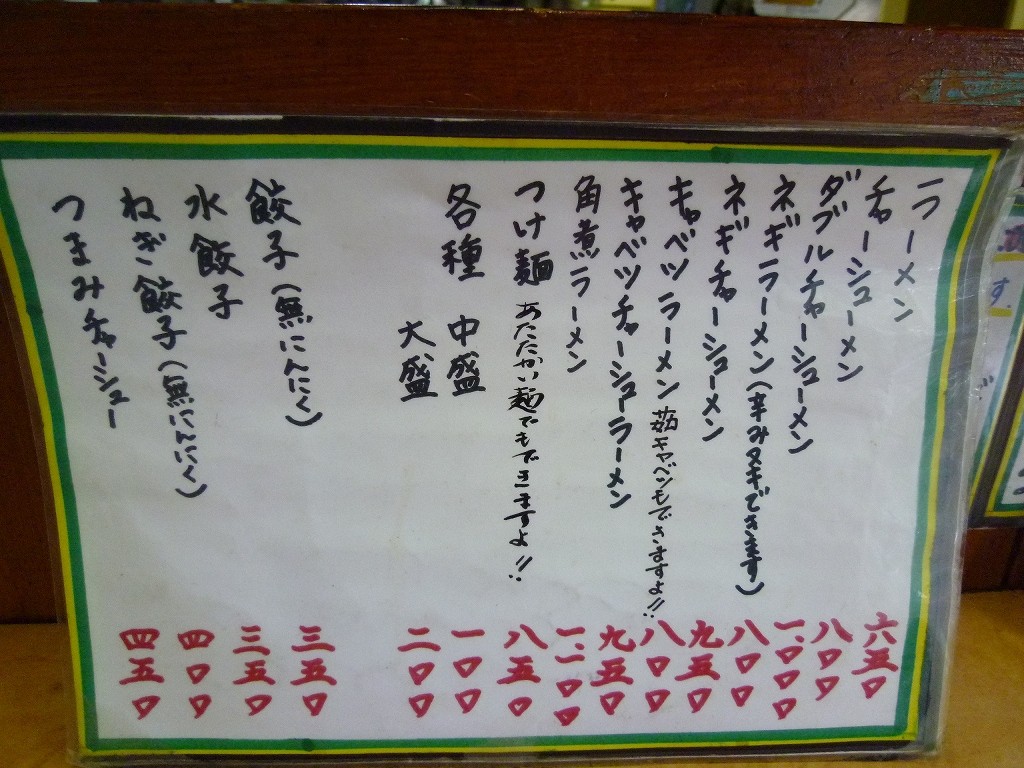 ラーメン 六五〇
チャーシューメン 八〇〇
ダブルチャーシューメン 一、〇〇〇
ネギラーメン(辛みヌキできます) 八〇〇
ネギチャーシューメン 九五〇
キャベツラーメン 茹キャベツもできますよ!! 八〇〇
キャベツチャーシューラーメン 九五〇
角煮ラーメン 一、一〇〇
つけ麺 あたたかい麺でもできますよ!! 八五〇
各種 中盛 一〇〇
大盛 二〇〇
餃子(無にんにく) 三五〇
水餃子 三五〇
ねぎ餃子(無にんにく) 四〇〇
つまみチャーシュー 四五〇